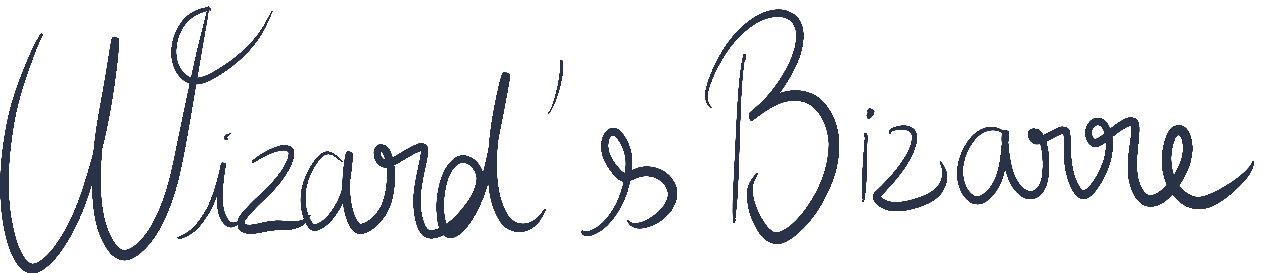 Wizard's Bizarre